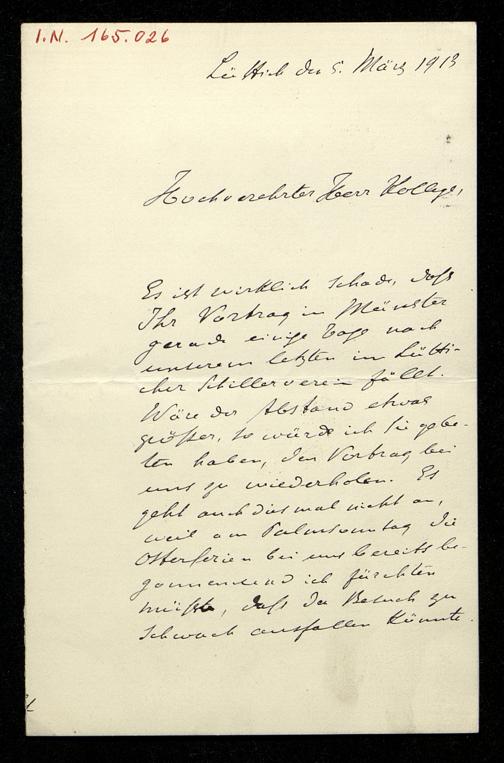 I.N. 165.026
Lüttich den 5. März 1913
Hochverehrter Herr Kollege,
Es ist wirklich schade, daß
Ihr Vortrag in Münster
gerade einige Tage nach
unserem letzten im Lütti-
cher Schillerverein fällt.
Wäre der Abstand etwas
größer, so würde ich Sie gebe-
ten haben, den Vortrag bei
uns zu wiederholen. Es
geht auch diesmal nicht an,
weil am Palmsonntag die
Osterferien bei uns bereits be-
gonnen und ich fürchten
müßte, daß der Besuch zu
schwach ausfallen könnte.